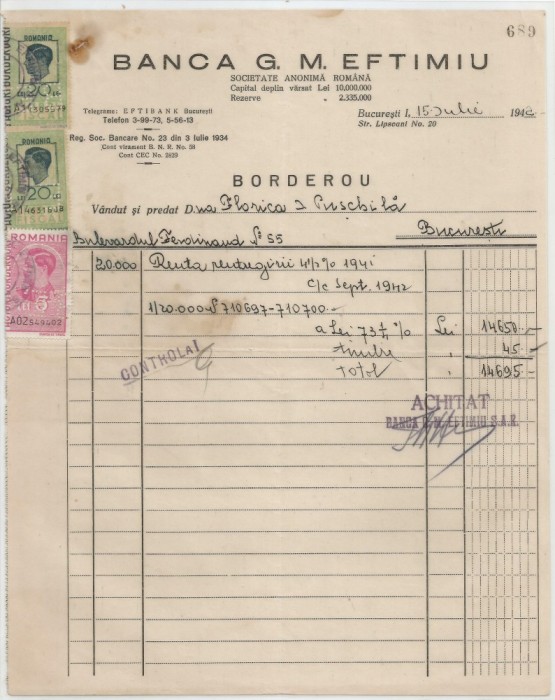 689
BANCA G. M. EFTIMIU
SOCIETATE ANONIMĂ ROMÂNĂ
Capital deplin vărsat Lei 10.000.000
Rezerve „ 2.335.000
Telegrame: EFTIBANK București
Telefon 3-99-73, 5-56-13
Reg. Soc. Bancare No. 23 din 3 Iulie 1934
Cont virament B. N. R. No. 38
Cont CEC No. 2629
București I, 15 Iulie 1942
Str. Lipscani No. 20
BORDEROU
Vândut și predat D.na Florica I Puschilă
Bulevardul Ferdinand No 55 București
20.000 Renta 4½% 1941
c/c Sept. 1942
1/20.000 No 710697-710700.-
a Lei 73¼% Lei 14650.-
Timbre " 45.-
Total " 14695.-
CONTROLAT
ACHITAT
BANCA G. M. EFTIMIU S.A.R.
ROMANIA
20 LEI
FISCAL
ROMANIA
20 LEI
FISCAL
ROMANIA
5
LEI
A02549402